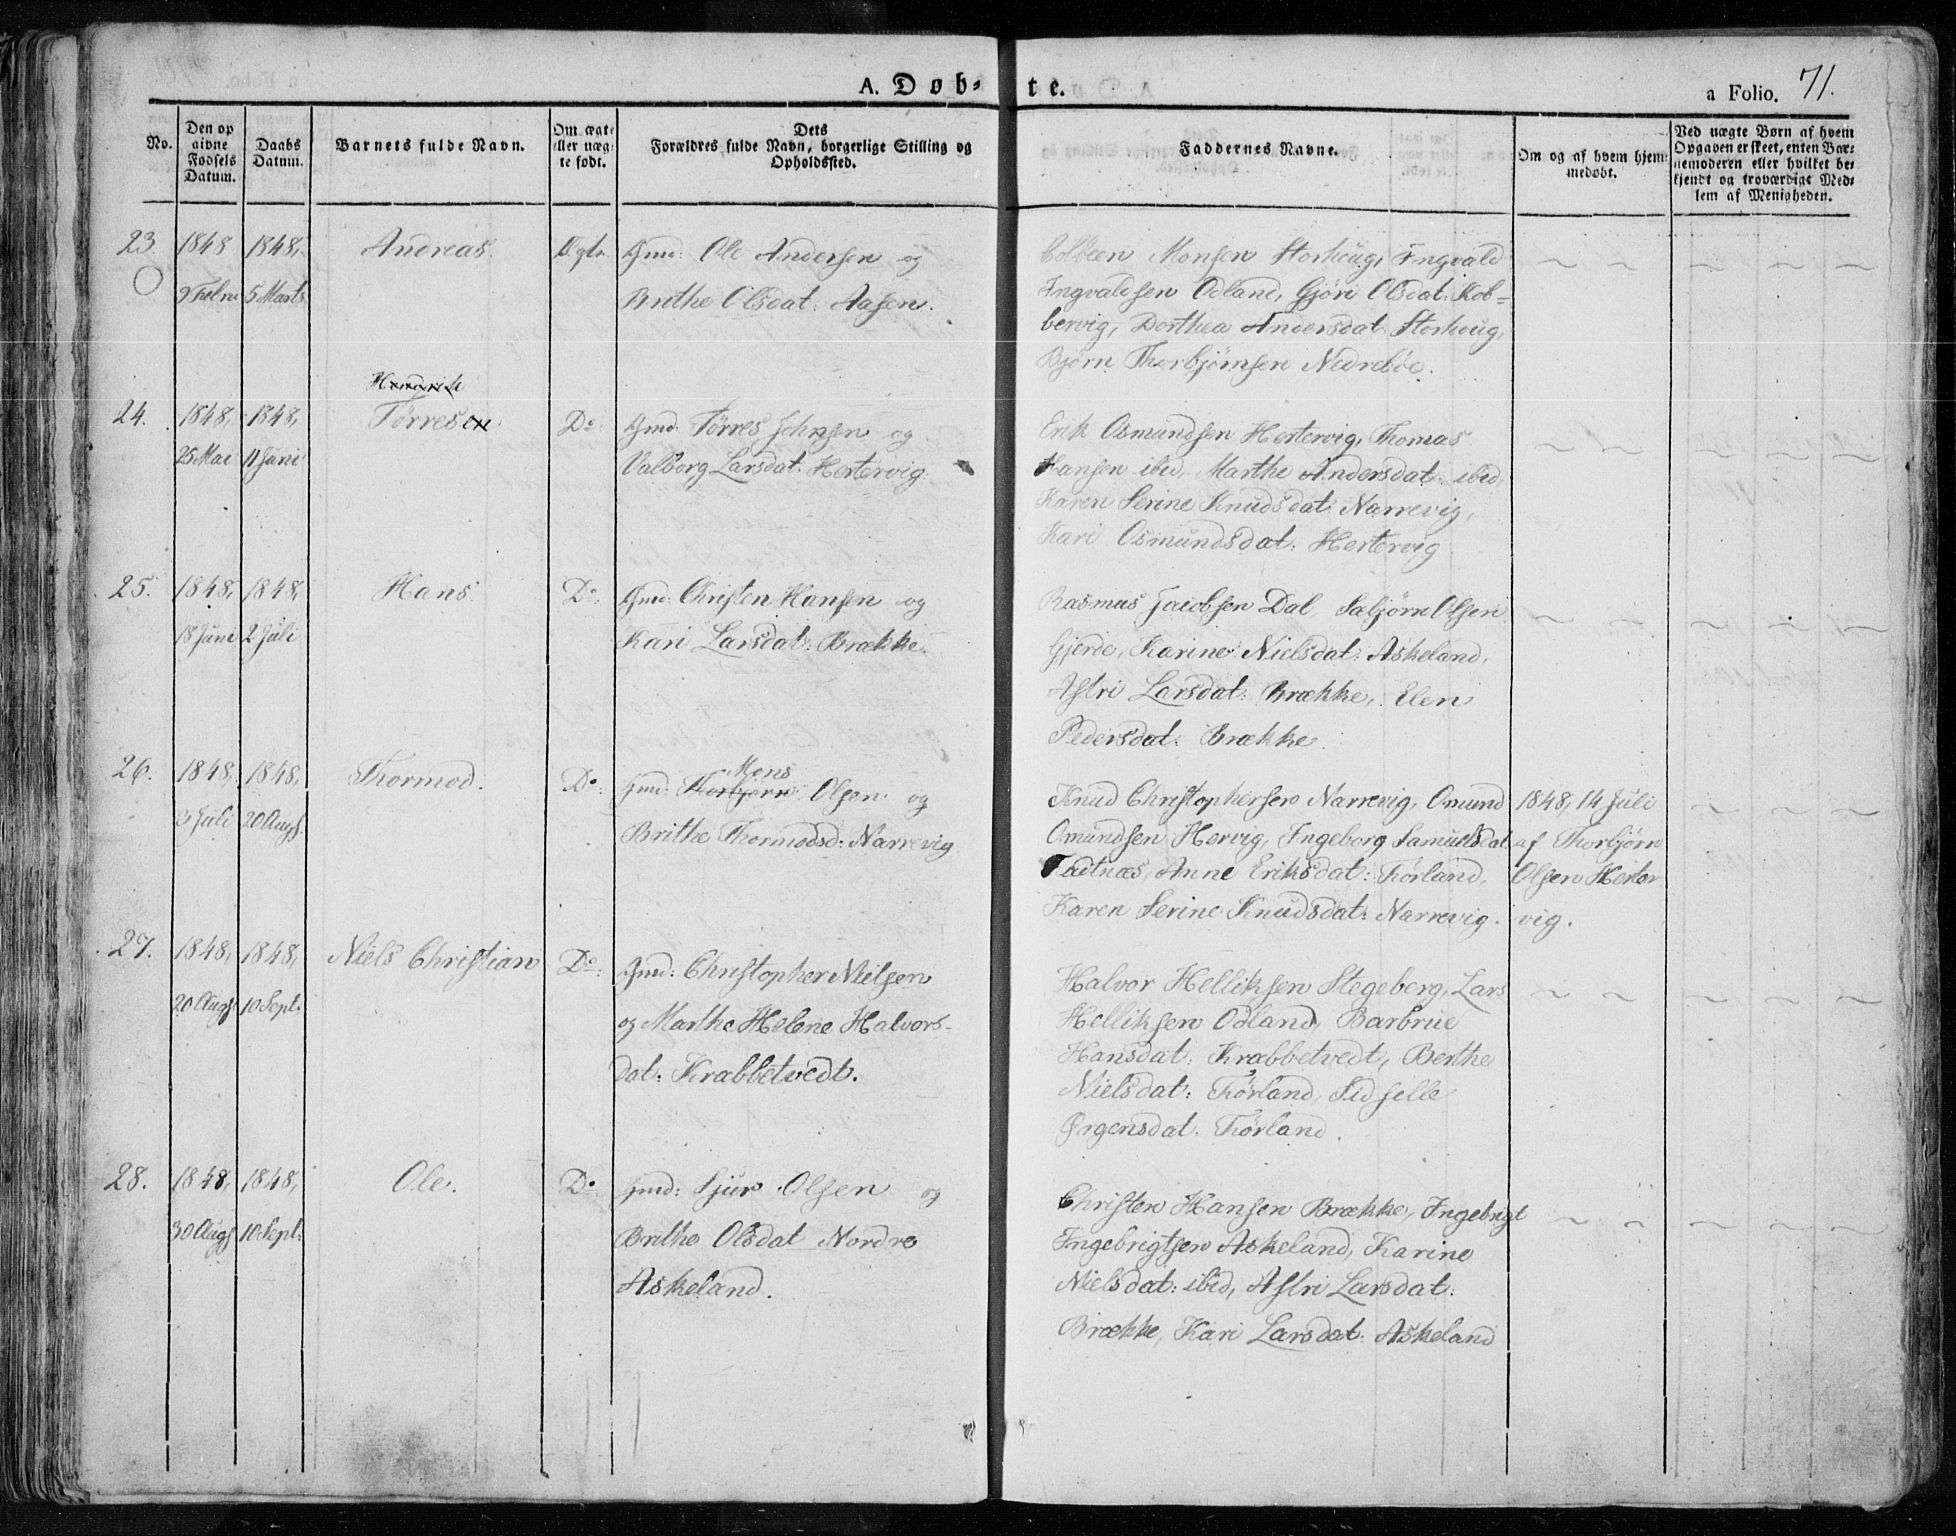 A. Døb- te.
a Folio. 71.
No.
Den opgivne Fødsels Datum.
Daabs Datum.
Barnets fulde Navn.
Om ægte eller uægte født.
Dets Forældres fulde Navn, borgerlige Stilling og Opholdssted.
Faddernes Navne.
Om og af hvem hjemmedøbt.
Ved uægte Børn af hvem Opgaven er skeet, enten Barnemoderen eller hvilket bekjendt og troværdigt Medlem af Menigheden.
23.
1848
9 Febru
1848,
5 Marts
Andreas.
Ægte
Gmd: Ole Andersen og
Brithe Olsdat: Aasen.
Colbeen Monsen Storhoug, Ingvald
Ingvaldsen Odland, Gjøri Olsdat: Kob=
bervig, Dorthea Andersdat Storhoug,
Bjørn Thorbjørnsen Nedrebøe.
24.
1848,
25 Mai
1848,
11 Juni
Tørresen
Do
Gmd: Tørres Johnsen og
Valborg Larsdat: Hertervig.
Erik Osmundsen Hertervig, Thomas
Hansen ibid, Marthe Andersdat: ibid,
Karen Serine Knudsdat: Narrevig,
Kari Osmundsdat: Hertervig
25.
1848,
18 Juni
1848,
2 Juli
Hans
Do:
Gmd: Christen Hansen og
Kari Larsdat: Brække.
Rasmus Jacobsen Dal, Sæbjørn Olsen
Gjerde, Karine Nielsdat: Askeland,
Astri Larsdat: Brække, Elen
Pedersdat: Brække.
26.
1848,
3 Juli
1848,
20 Augs
Thormod.
Do:
Mons
Gmd: Thorbjørn Olsen og
Brithe Thormodsd: Narrevig
Knud Christophersen Narrevig, Omund
Omundsen Hervig, Ingeborg Samuelsdat
Anne Eriksdat: Førland,
Karen Serine Knudsdat: Narrevig.
1848, 14 Juli
af Thorbjørn
Olsen Herter
vig.
27.
1848,
20 Augs
1848,
10 Sept:
Niels Christian
Do:
Gmd: Christopher Nielsen
og Marthe Helene Halvors-
dat: Krabbetvedt.
Halvor Helliksen Stegeberg, Lars
Helliksen Odland, Barbrue
Hansdat: Krabbetvedt, Berthe
Nielsdat: Førland, Sidselle
Ørgensdat. Førland.
28.
1848,
30 Augs
1848,
10 Sept:
Ole.
Do
Gmd: Sjur Olsen og
Brithe Olsdat Nordre
Askeland.
Christen Hansen Brække, Ingebrigt
Ingebrigtsen Askeland, Karine
Nielsdat: ibid, Astri Larsdat:
Brække, Kari Larsdat: Askeland